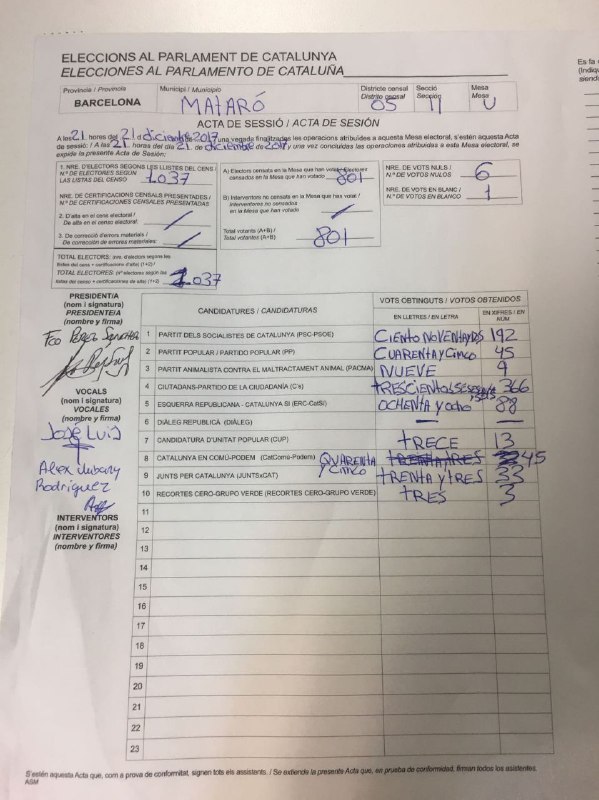 ELECCIONS AL PARLAMENT DE CATALUNYA
ELECCIONES AL PARLAMENTO DE CATALUÑA
Província / Provincia
Municipi / Municipio
Districte censal
Distrito censal
Secció
Sección
Mesa
Mesa
BARCELONA
MATARÓ
05
11
U
ACTA DE SESSIÓ / ACTA DE SESIÓN
A les 21 hores del 21 de diciembre 2017, una vegada finalitzades les operacions atribuïdes a aquesta Mesa electoral, s'estén aquesta Acta
de sessió: / A las 21. horas del día 21 de diciembre de 2017, una vez concluidas las operaciones atribuidas a esta Mesa electoral, se
expide la presente Acta de Sesión:
1. NRE. D'ELECTORS SEGONS LES LLISTES DEL CENS /
N.º DE ELECTORES SEGÚN
LAS LISTAS DEL CENSO
1.037
NRE. DE CERTIFICACIONS CENSALS PRESENTADES /
N.º DE CERTIFICACIONES CENSALES PRESENTADAS
2. D'alta en el cens electoral /
De alta en el censo electoral:
3. De correcció d'errors materials /
De corrección de errores materiales:
TOTAL ELECTORS: (nre. d'electors segons les
llistes del cens + certificacions d'alta) (1+2) /
TOTAL ELECTORES: (Nº electores según las
listas del censo + certificaciones de alta) (1+2)
1.037
A) Electors censats en la Mesa que han votat / Electores
censados en la Mesa que han votado
801
B) Interventors no censats en la Mesa que han votat /
Interventores no censados
en la Mesa que han votado
Total votants (A+B) /
Total votantes (A+B)
801
NRE. DE VOTS NULS /
N.º DE VOTOS NULOS
6
NRE. DE VOTS EN BLANC /
N.º DE VOTOS EN BLANCO
1
PRESIDENT/A
(nom i signatura)
PRESIDENTE/A
(nombre y firma)
Fco Pérez Sánchez
VOCALS
(nom i signatura)
VOCALES
(nombre y firma)
José Luis
Alex Jubany
Rodríguez
INTERVENTORS
(nom i signatura)
INTERVENTORES
(nombre y firma)
CANDIDATURES / CANDIDATURAS
VOTS OBTINGUTS / VOTOS OBTENIDOS
EN LLETRES / EN LETRA
EN XIFRES / EN NÚM
1 PARTIT DELS SOCIALISTES DE CATALUNYA (PSC-PSOE) CIENTO NOVENTA y DOS 192
2 PARTIT POPULAR / PARTIDO POPULAR (PP) CUARENTA y CINCO 45
3 PARTIT ANIMALISTA CONTRA EL MALTRACTAMENT ANIMAL (PACMA) NUEVE 9
4 CIUTADANS-PARTIDO DE LA CIUDADANÍA (C's) tRESCIENtOS SESENTA y SEIS 366
5 ESQUERRA REPUBLICANA - CATALUNYA SÍ (ERC-CatSÍ) OCHENTA y ocho 88
6 DIÀLEG REPUBLICÀ (DIÀLEG) — —
7 CANDIDATURA D'UNITAT POPULAR (CUP) tRECE 13
8 CATALUNYA EN COMÚ-PODEM (CatComú-Podem) QUARENTA y CINCO tRENTA y tRES 45
9 JUNTS PER CATALUNYA (JUNTSxCAT) tRENTA y tRES 33
10 RECORTES CERO-GRUPO VERDE (RECORTES CERO-GRUPO VERDE) tRES 3
11
12
13
14
15
16
17
18
19
20
21
22
23
S'estén aquesta Acta que, com a prova de conformitat, signen tots els assistents. / Se extiende la presente Acta que, en prueba de conformidad, firman todos los asistentes.
ASM
Es fa
(Indiq
sendo